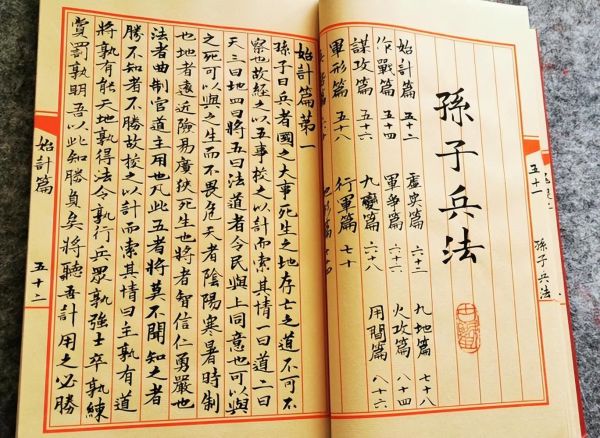 孫子兵法
五十一
孫子兵法
始計篇 五十二 虛實篇 六十二 九地篇 七十八
作戰篇 五十四 軍爭篇 六十六 火攻篇 八十四
謀攻篇 五十六 九變篇 六十八 用間篇 八十六
軍形篇 五十八 行軍篇 七十
始計篇第一
孫子曰兵者國之大事死生之地存亡之道不可不
察也故經之以五事校之以計而索其情一曰道二曰
天三曰地四曰將五曰法道者令民與上同意也可以與
之死可以與之生而不畏危天者陰陽寒暑時制
也地者遠近險易廣狹死生也將者智信仁勇嚴也
法者曲制官道主用也凡此五者將莫不聞知之者
勝不知者不勝故校之以計而索其情曰主孰有道
將孰有能天地孰得法令孰行兵眾孰強士卒孰練
賞罰孰明吾以此知勝負矣將聽吾計用之必勝
始計篇
五十二